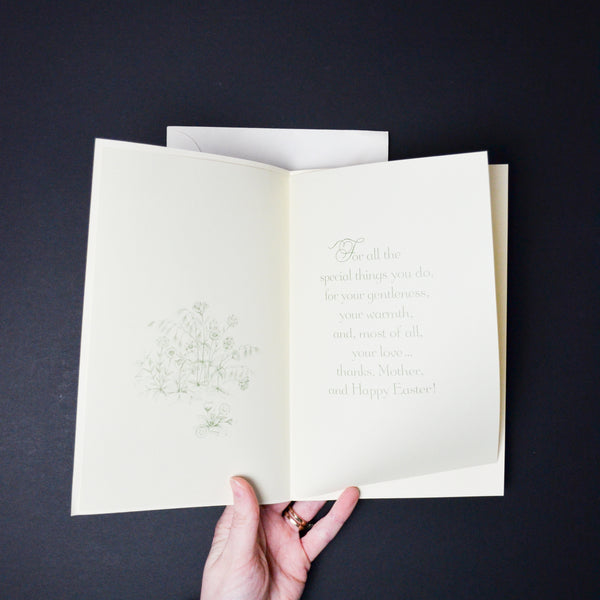 For all the
special things you do,
for your gentleness,
your warmth,
and, most of all,
your love...
thanks, Mother,
and Happy Easter!